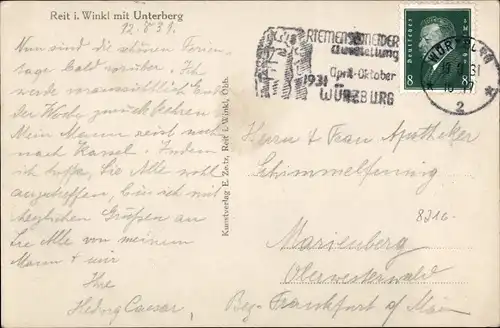 Reit i. Winkl mit Unterberg
12.8.31.
Nun sind die schönen Ferien-
tage bald vorüber. Ich
werde wahrscheinlich Ende
der Woche zurückkehren
Mein Mann reist noch
nach Kassel. Indem
ich hoffe, Sie Alle wohl
anzutreffen, bin ich mit
herzlichen Grüßen an
Sie Alle von meinem
Mann & mir
Ihre
Hedwig Caesar,
Kunstverlag E. Zeitz, Reit i. Winkl, Obb.
RIEMENSCHNEIDER
Ausstellung
April-Oktober
1931
WÜRZBURG
WÜRZBURG
2
Deutsches Reich
8 8
Herrn & Frau Apotheker
Schimmelfennig
8316
Marienberg
Oberwesterwald
Bez. Frankfurt a/ Main